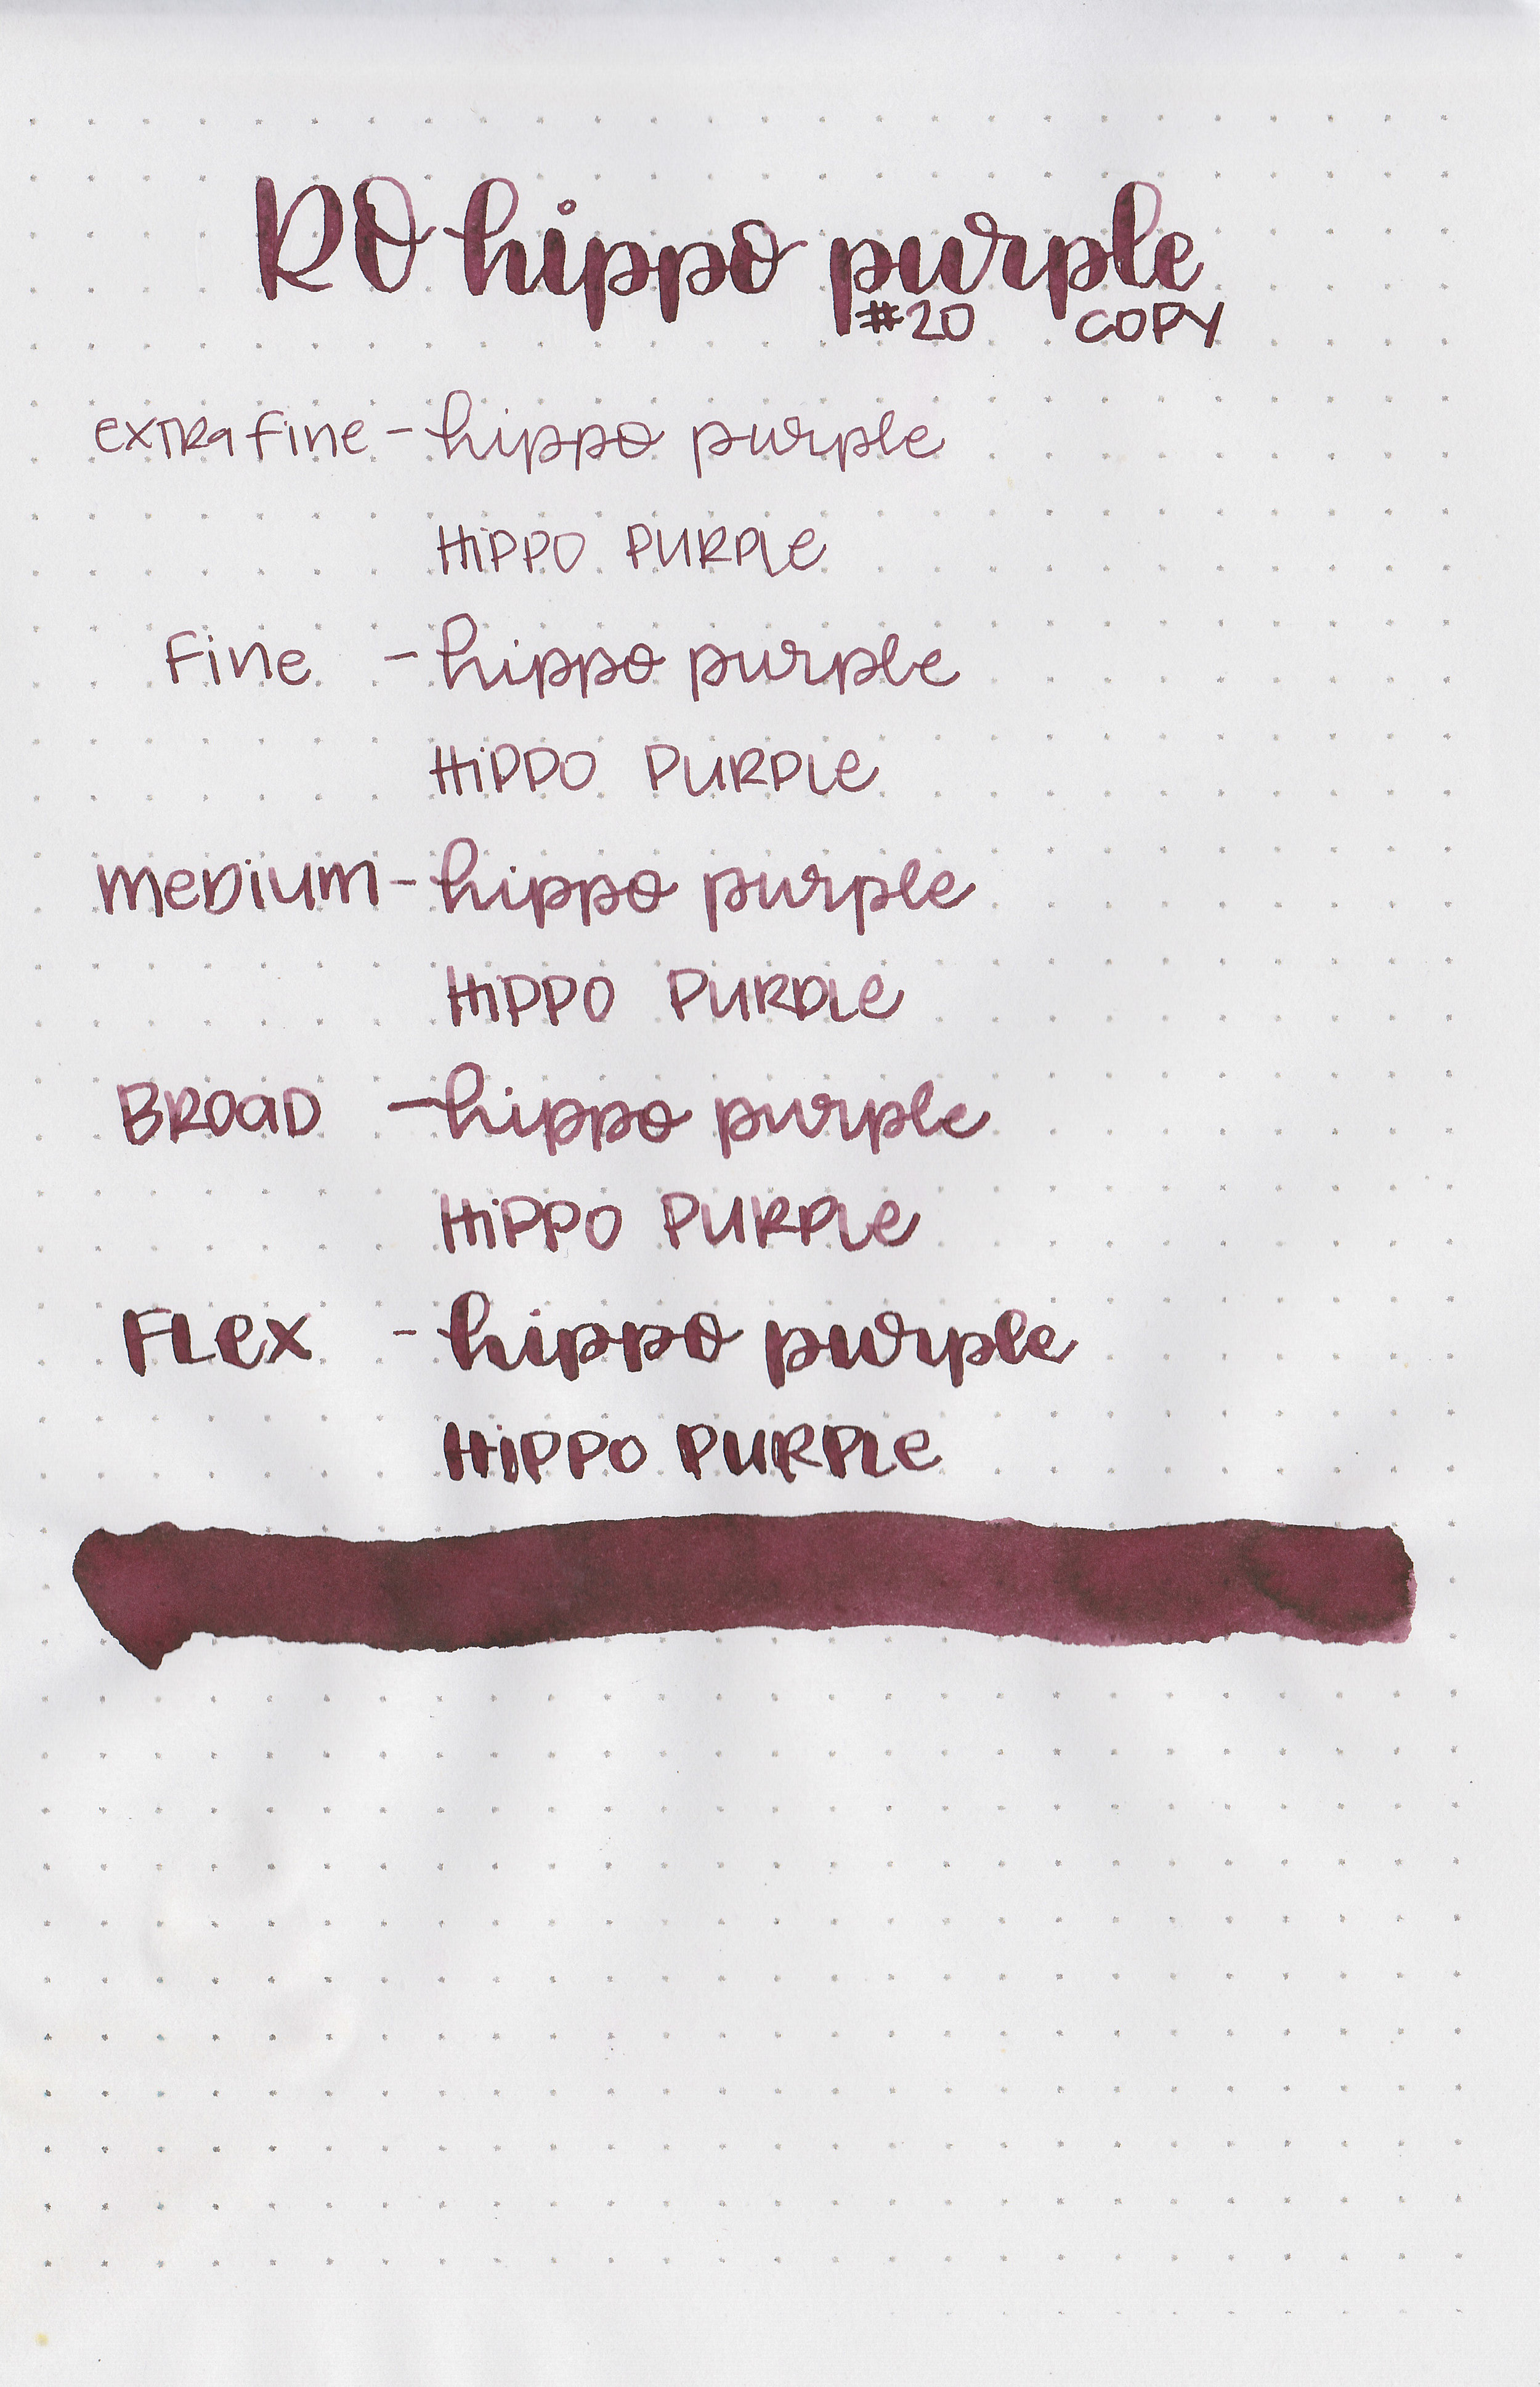 RO hippo purple
#20 COPY
extra fine - hippo purple
HiPPO PURPLe
Fine - hippo purple
HiPPO PURPLe
meDium - hippo purple
HiPPO PURPLe
BROaD - hippo purple
HiPPO PURPLe
FLex - hippo purple
HiPPO PURPLe